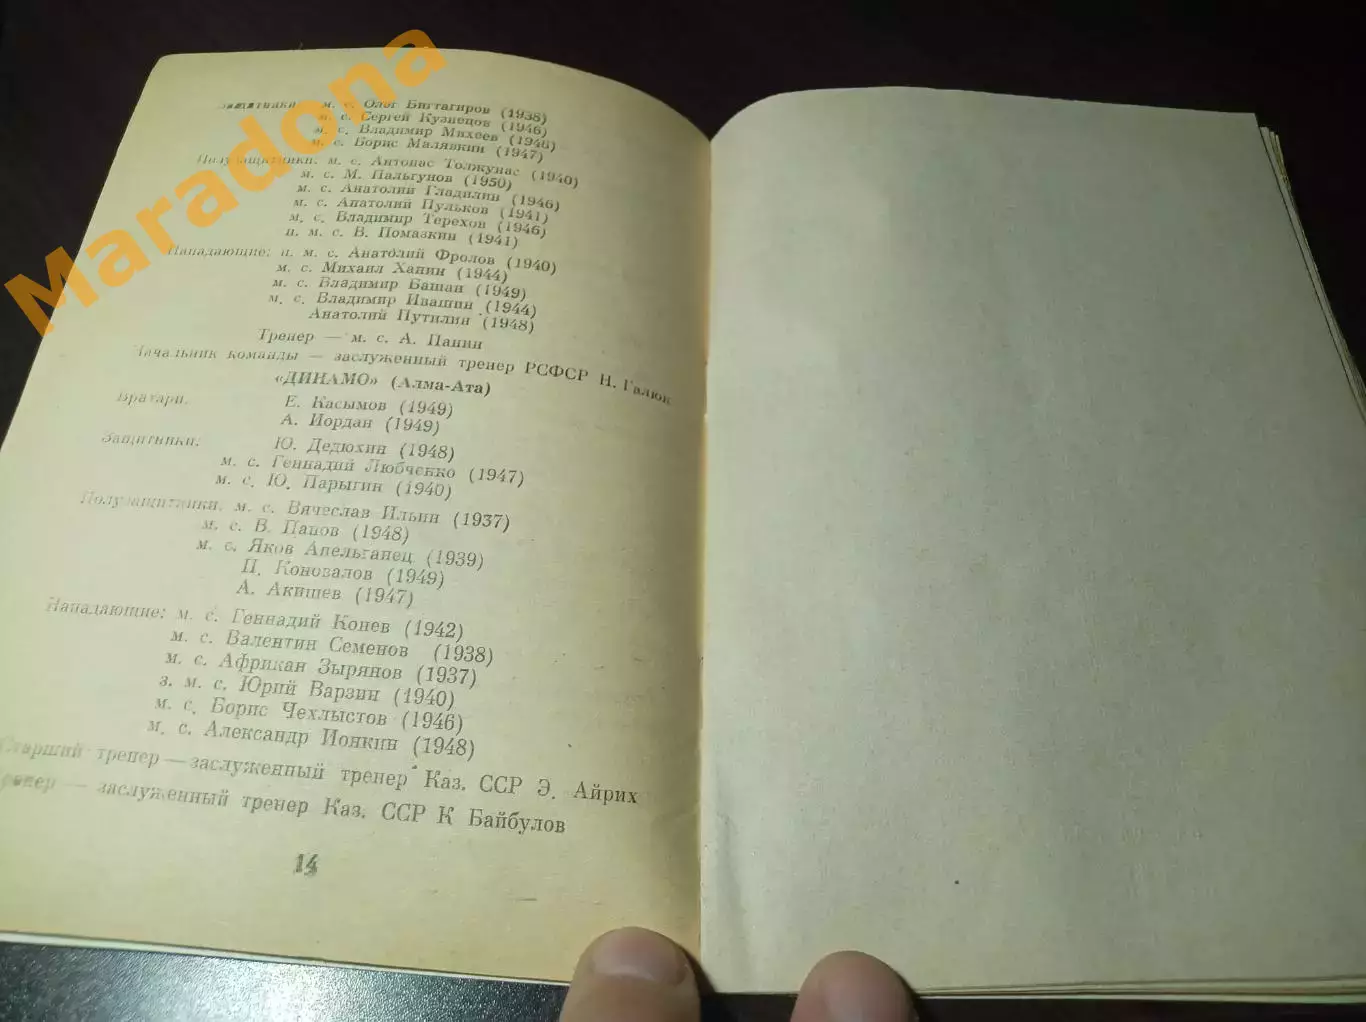 Maradona
Защитники: м. с. Олег Биктагиров (1938)
м. с. Сергей Кузнецов (1946)
м. с. Владимир Михеев (1946)
м. с. Борис Малявкин (1947)
Полузащитники: м. с. Антонас Толжунас (1940)
м. с. М. Пальгунов (1950)
м. с. Анатолий Гладилин (1946)
м. с. Анатолий Пульков (1941)
м. с. Владимир Терехов (1946)
п. м. с. В. Помазкин (1941)
Нападающие: п. м. с. Анатолий Фролов (1940)
м. с. Михаил Ханин (1944)
м. с. Владимир Башан (1949)
м. с. Владимир Ивашин (1944)
Анатолий Путилин (1948)
Тренер — м. с. А. Панин
Начальник команды — заслуженный тренер РСФСР Н. Галюк
«ДИНАМО» (Алма-Ата)
Вратари: Е. Касымов (1949)
А. Иордан (1949)
Защитники: Ю. Дедюхин (1948)
м. с. Геннадий Любченко (1947)
м. с. Ю. Парыгин (1940)
Полузащитники: м. с. Вячеслав Ильин (1937)
м. с. В. Панов (1948)
м. с. Яков Апельганец (1939)
П. Коновалов (1949)
А. Акишев (1947)
Нападающие: м. с. Геннадий Конев (1942)
м. с. Валентин Семенов (1938)
м. с. Африкан Зырянов (1937)
з. м. с. Юрий Варзин (1940)
м. с. Борис Чехлыстов (1946)
м. с. Александр Ионкин (1948)
Старший тренер — заслуженный тренер Каз. ССР Э. Айрих
тренер — заслуженный тренер Каз. ССР К Байбулов
14